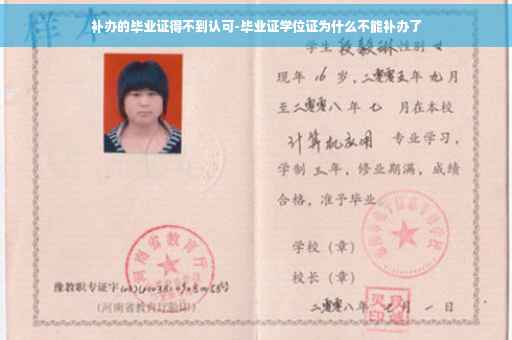 补办的毕业证得不到认可-毕业证学位证为什么不能补办了
样本
学生 段毅琳 性别 女
现年 16 岁，二零零五年 九月
至二零零八 年 七 月在本校
计算机应用 专业学习，
学制 三 年，修业期满，成绩
合格，准予毕业。
学校（章）
校长（章）
二零零八年 七 月 一 日
河南省教育厅
豫教职专证字
（河南省教育厅验印）